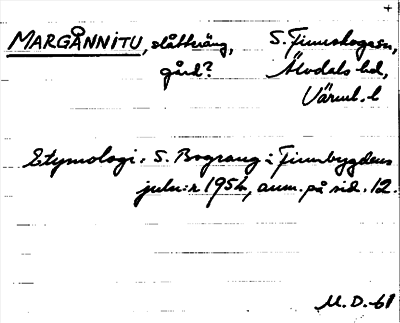 +
MARGÅNNITU, slåtteräng, S. Finnskoga sn,
gård? Älvdals hd,
Värml. l
Etymologi: S. Bograng i Finnbygdens
julnr 1954, anm. på sid. 12.
M. D. -61